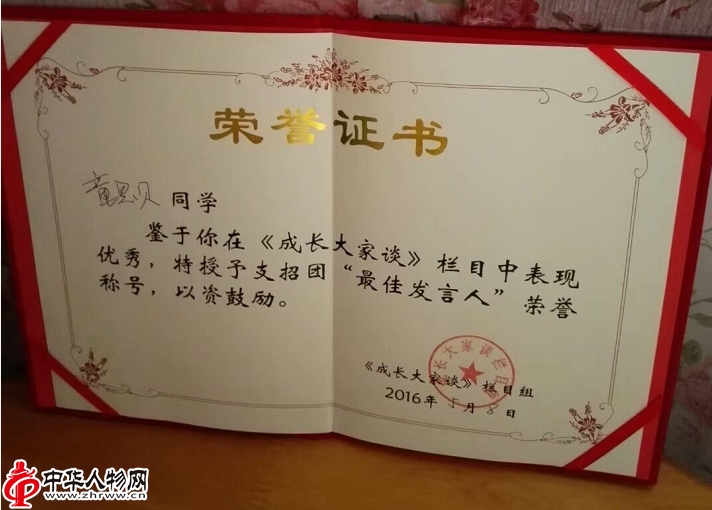 荣誉证书
童思贝 同学
鉴于你在《成长大家谈》栏目中表现
优秀，特授予支招团“最佳发言人”荣誉
称号，以资鼓励。
长大家谈栏目
《成长大家谈》栏目组
2016年5月8日
中华人物网
www.zhrww.com